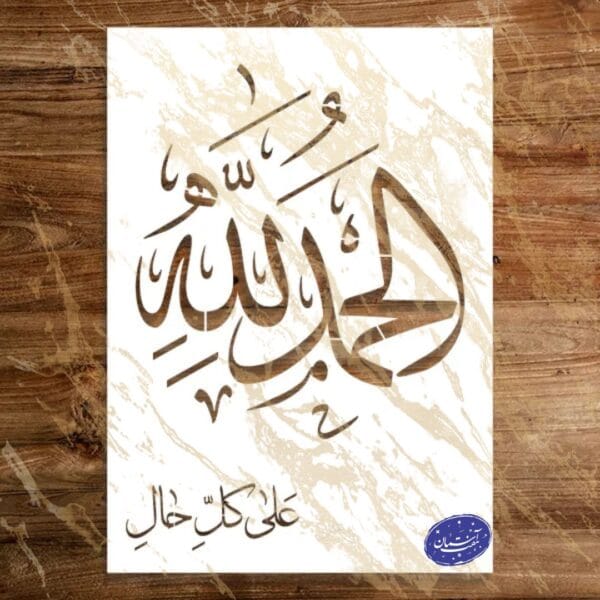 الحمدُ للَّهِ
عَلىٰ كلِّ حالِ